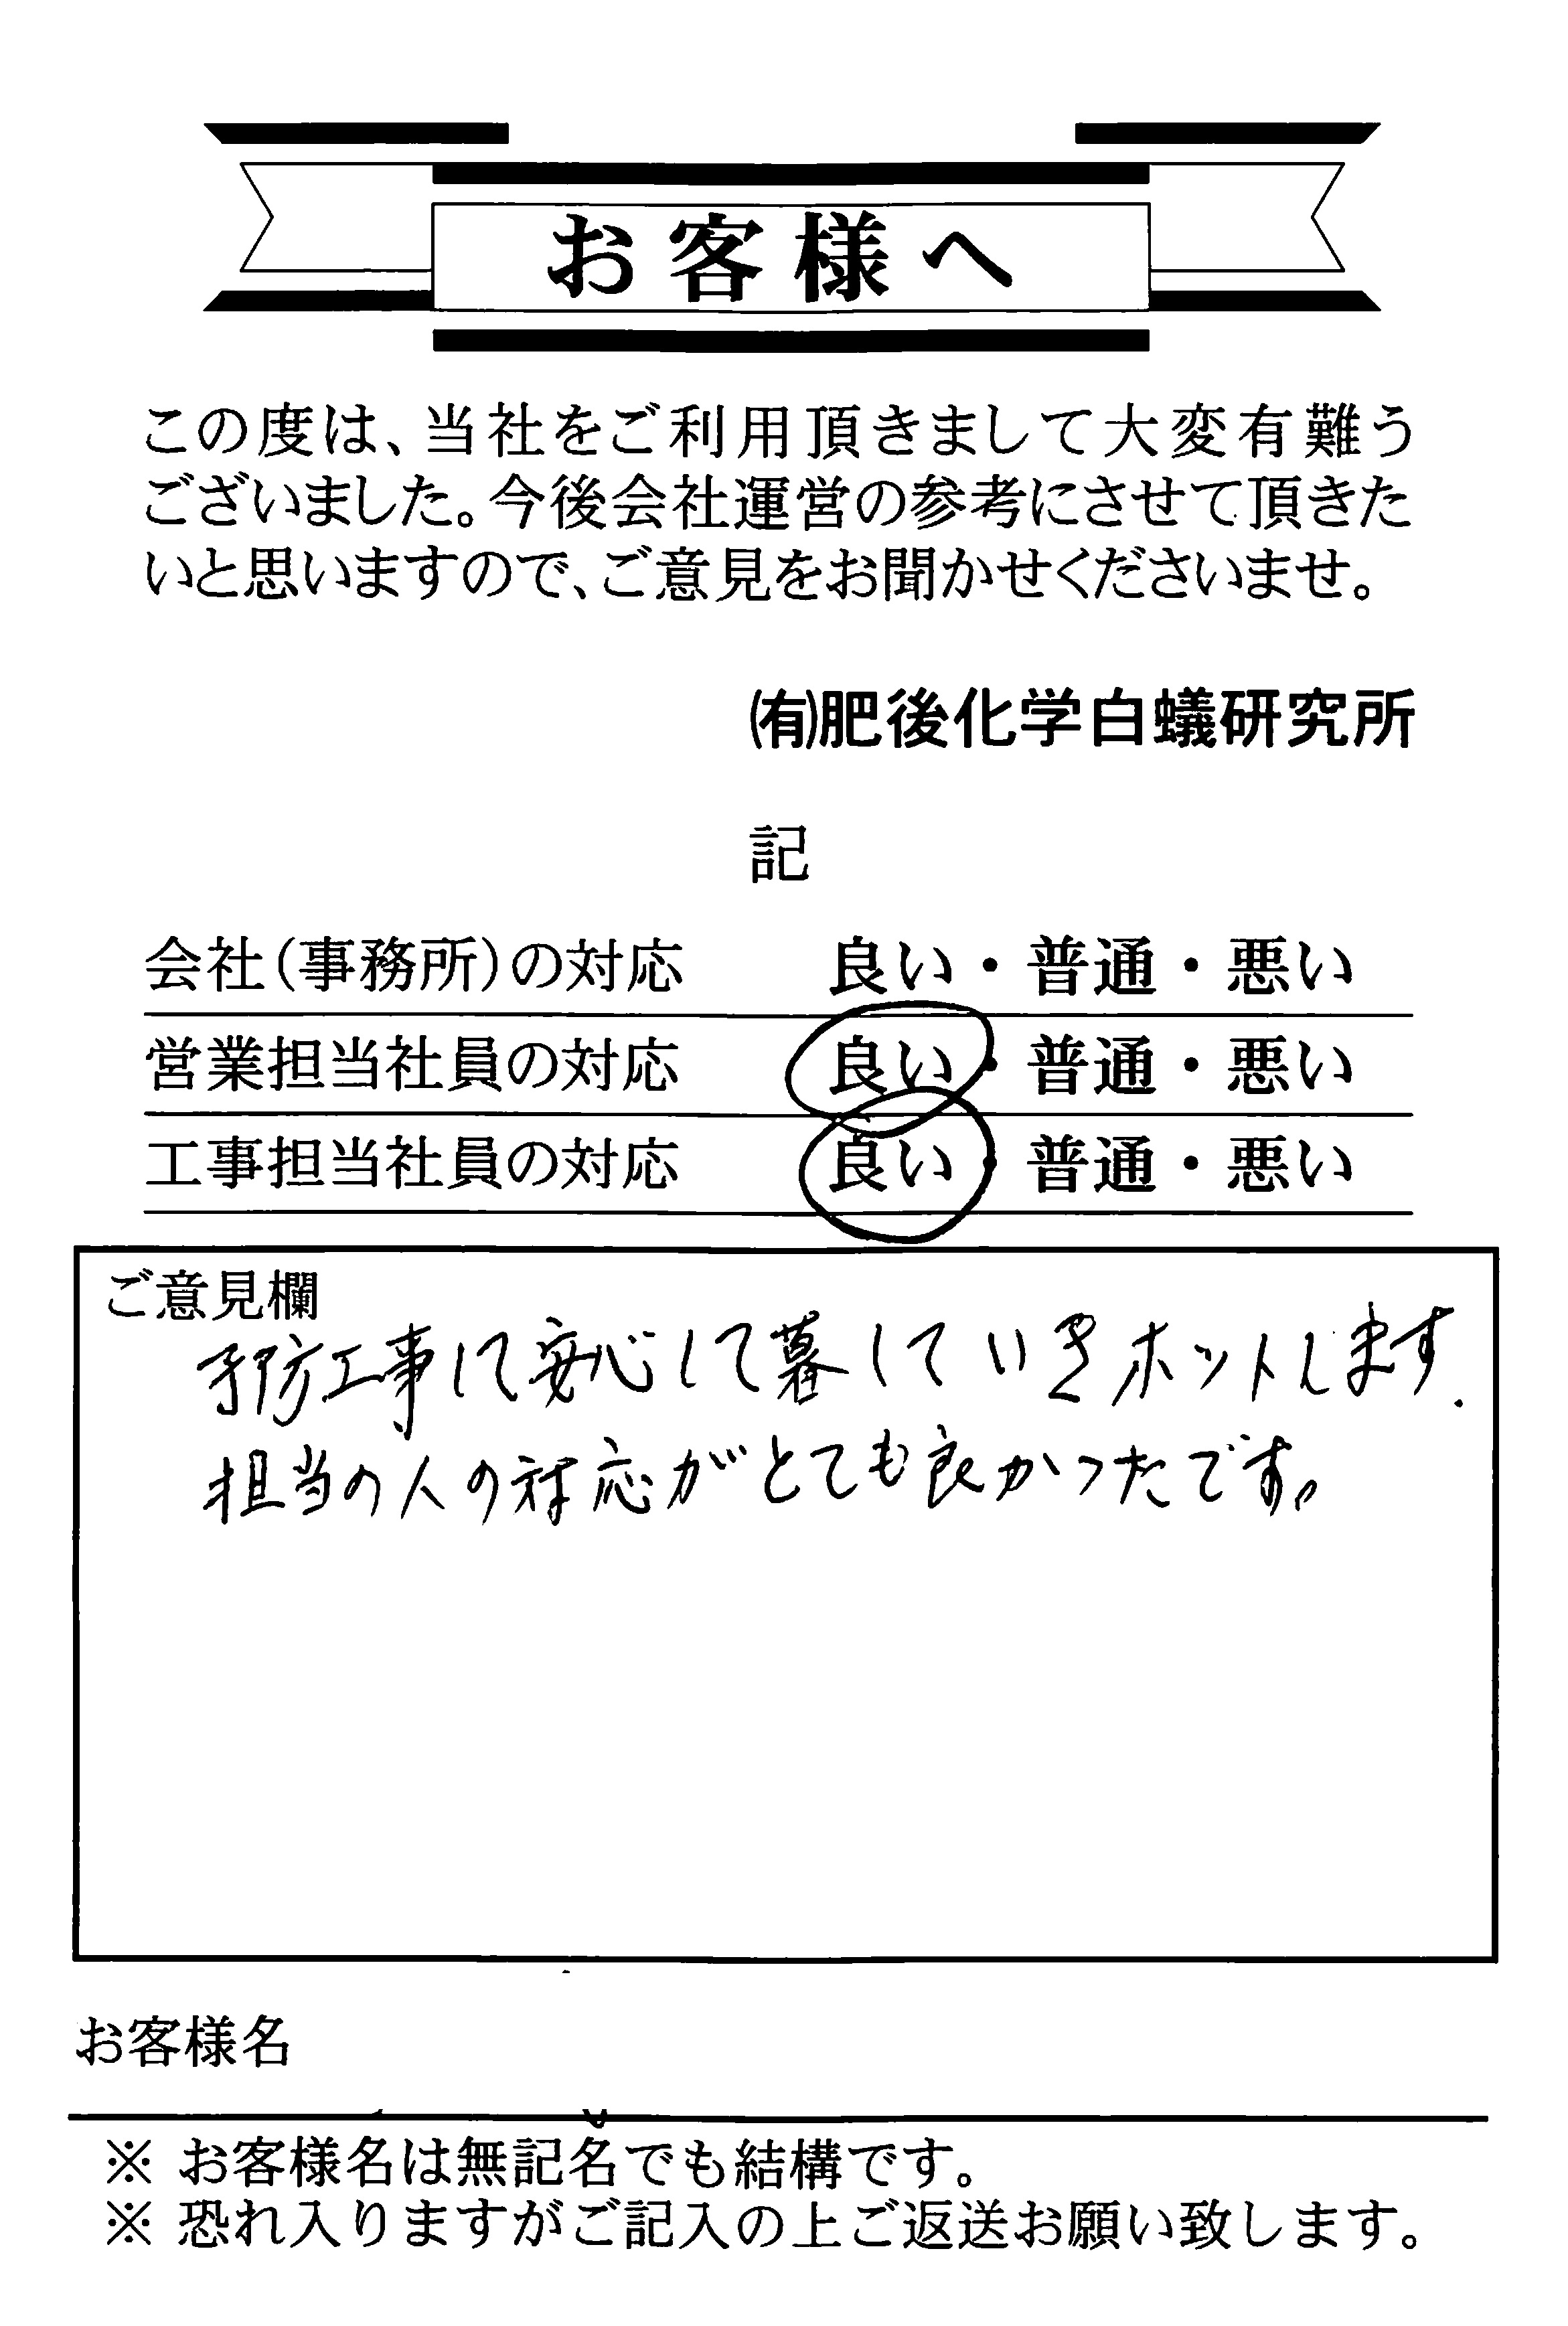 お客様へ
この度は、当社をご利用頂きまして大変有難う
ございました。今後会社運営の参考にさせて頂きた
いと思いますので、ご意見をお聞かせくださいませ。
㈲肥後化学白蟻研究所
記
会社(事務所)の対応 良い・普通・悪い
営業担当社員の対応 良い・普通・悪い
工事担当社員の対応 良い・普通・悪い
ご意見欄
予防工事して安心して暮していきホットします.
担当の人の対応がとても良かったです。
お客様名
※ お客様名は無記名でも結構です。
※ 恐れ入りますがご記入の上ご返送お願い致します。